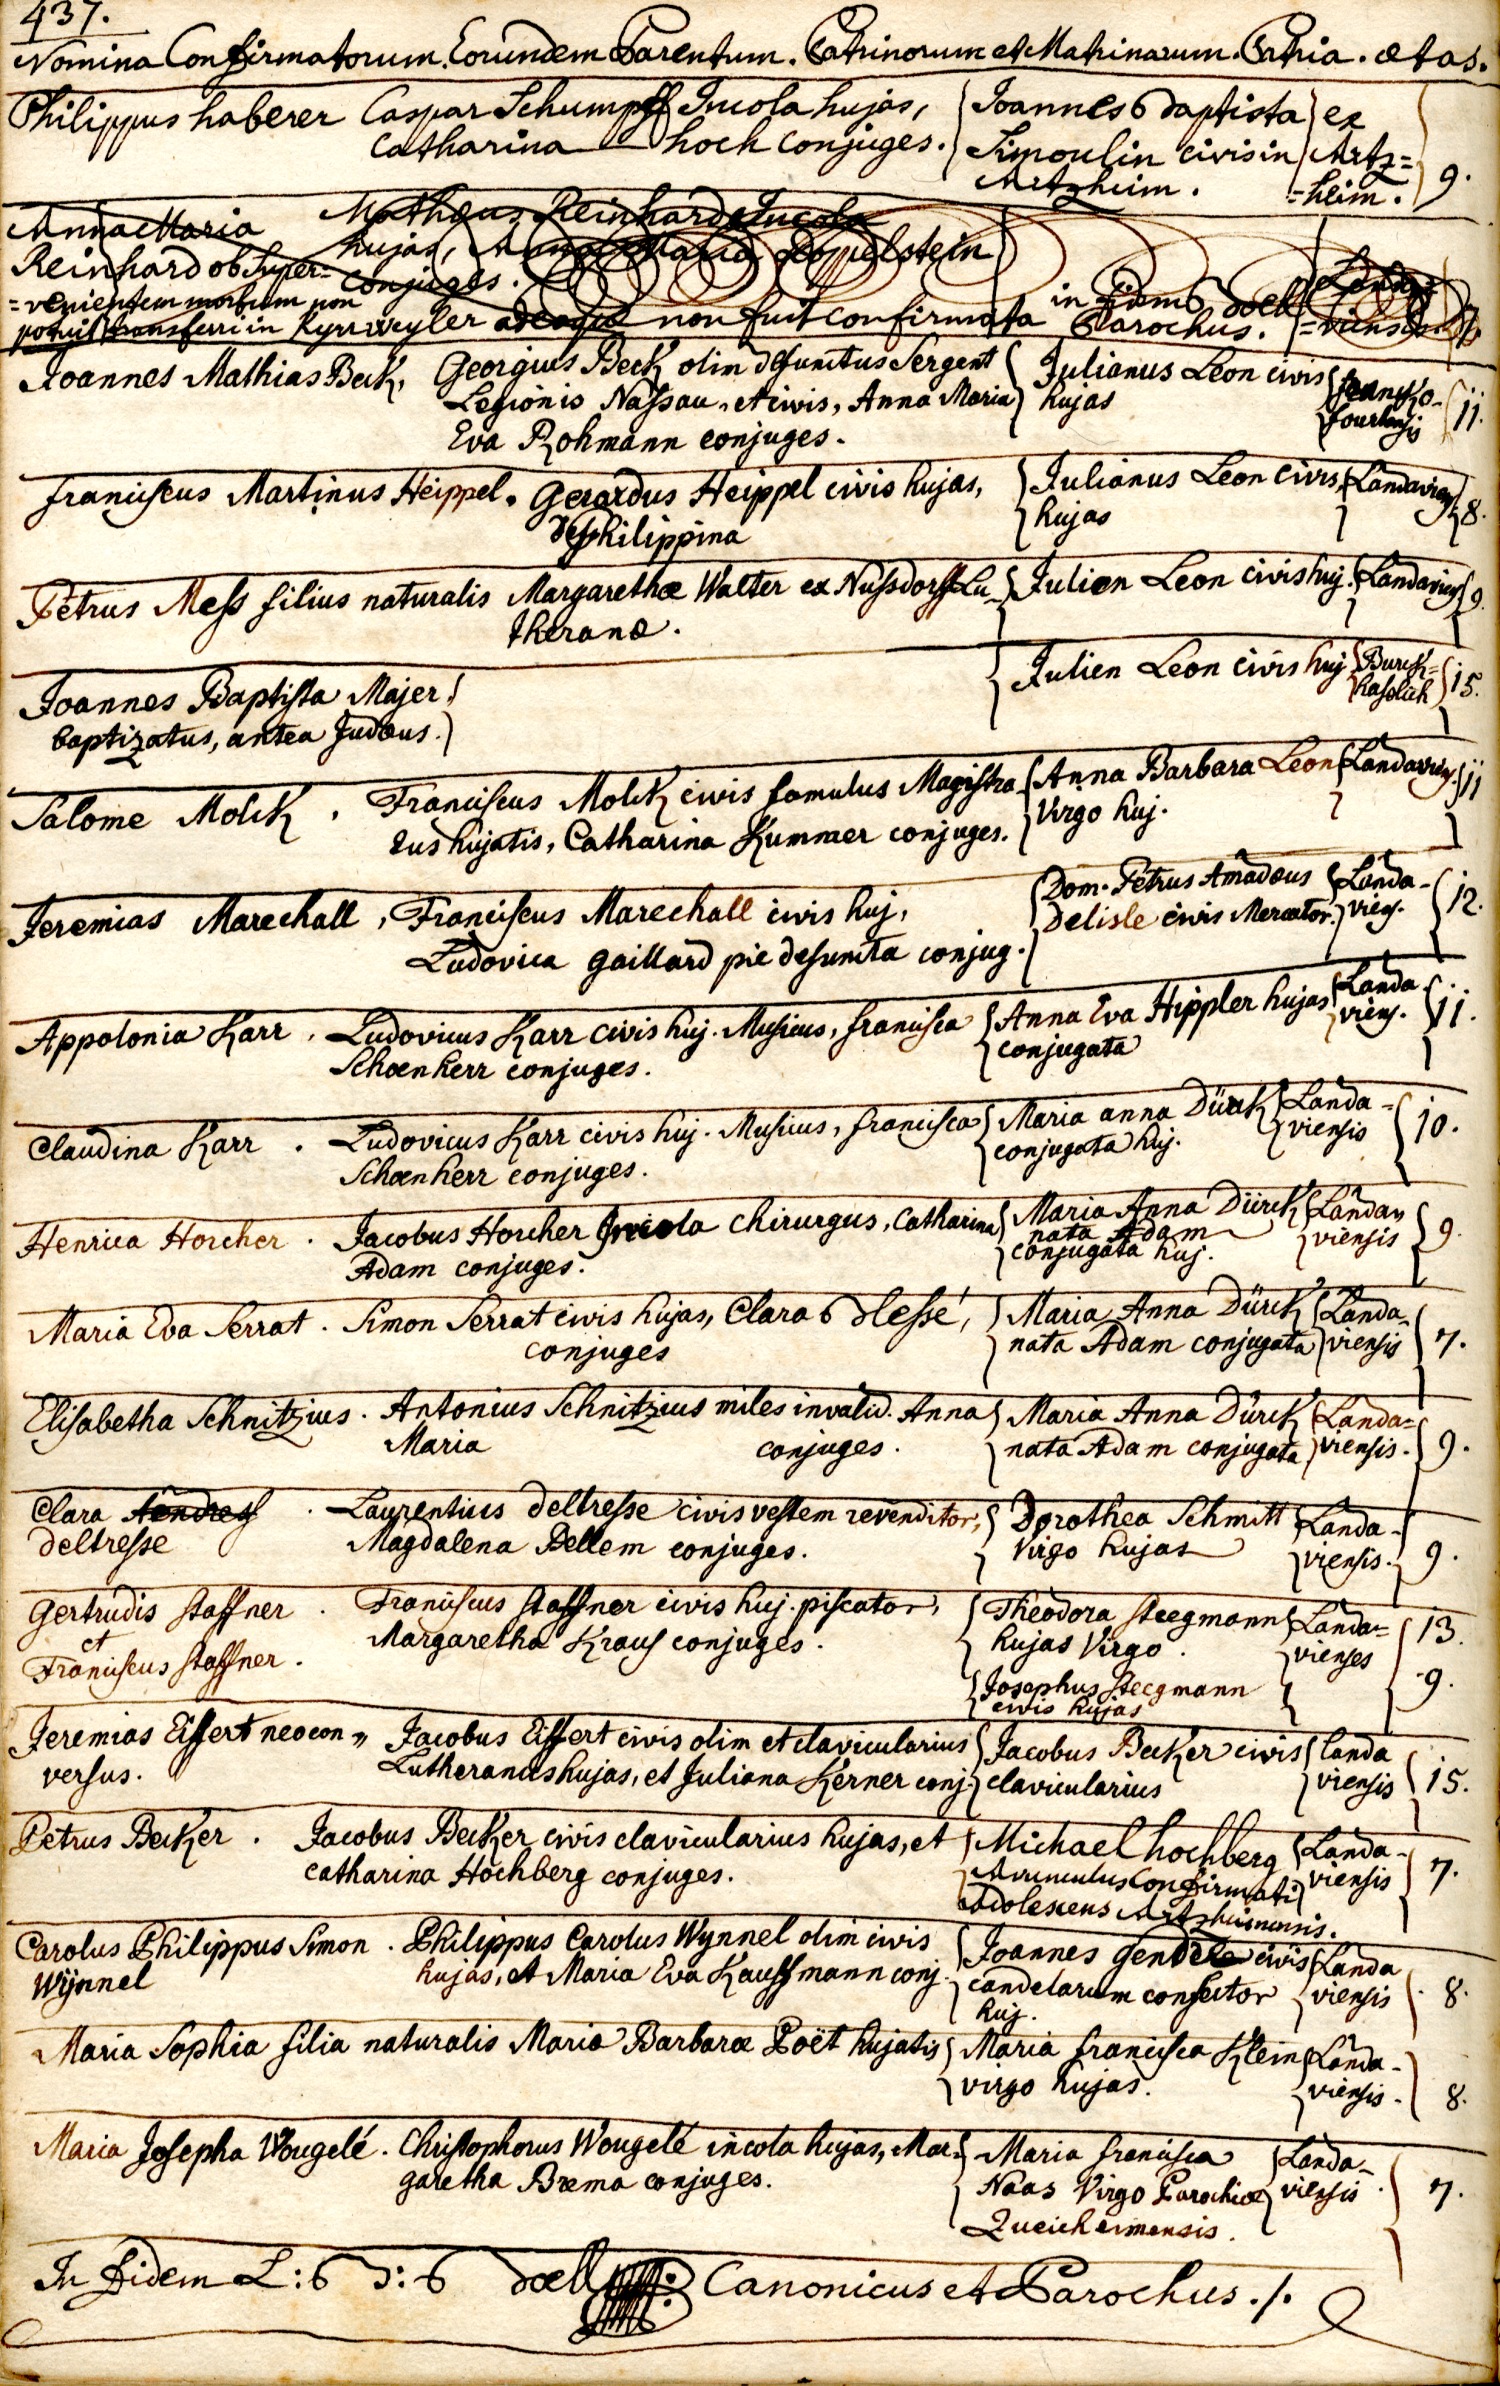 437.
Nomina Confirmatorum. Eorundem Parentum. Patrinorum et Matrinarum. Patria. ætas.
Philippus haberer Caspar Schumpff Incola hujas, Joannes Baptista ex
Catharina hoch conjuges. Simoulin civis in Artz=
Artzheim. =heim. 9.
Anna Maria Matheus Reinhard Incola
Reinhard ob super= hujas, Anna Maria Doppelstein
=venientem morbum non conjuges. in fidem doell Landa
potuit transferri in Kyrrweyler adeoque non fuit confirmata Parochus. =viensis
Joannes Mathias Beck, Georgius Beck olim defunctus Sergent Julianus Leon civis
Legionis Nassau, et civis, Anna Maria hujas 11.
Eva Rohmann conjuges.
Franciscus Martinus Heippel. Gerardus Heippel civis hujas, Julianus Leon civis Landavien 8.
Philippina hujas
Petrus Mess filius naturalis Margarethæ Walter ex Nussdorff Lu- Julien Leon civis huj. Landaviens 9.
theranæ.
Joannes Baptista Majer Julien Leon civis huj Burck= 15.
baptizatus, antea Judæus. haslich
Salome Molck. Franciscus Molck civis famulus Magistra Anna Barbara Leon Landaviens. 11
tus hujatis, Catharina Kummer conjuges. Virgo huj.
Jeremias Marechall, Franciscus Marechall civis huj, Dom. Petrus Amadæus Landa- 12.
Ludovica Gaillard pie defuncta conjug. Delisle civis Mercator. viens.
Appolonia Karr. Ludovicus Karr civis huj. Musicus, francisca Anna Eva Hippler hujas Landa 11.
Schœnherr conjuges. conjugata viens.
Claudina Karr. Ludovicus Karr civis huj. Musicus, francisca Maria anna Dürck Landa- 10.
Schœnherr conjuges. conjugata huj. viensis
Henrica Horcher. Jacobus Horcher Incola Chirurgus, Catharina Maria Anna Dürck Landa„ 9.
Adam conjuges. nata Adam viensis
conjugata huj.
Maria Eva Serrat. Simon Serrat civis hujas, Clara Blessé, Maria Anna Dürck Landa- 7.
conjuges nata Adam conjugata viensis
Elisabetha Schnitzius. Antonius Schnitzius miles invalid. Anna Maria Anna Dürck Landa= 9.
Maria conjuges. nata Adam conjugata viensis.
Clara Andress. Laurentius deltresse civis vestem revenditor, Dorothea Schmitt Landa- 9.
deltresse Magdalena Bellem conjuges. Virgo hujas viensis.
Gertrudis staffner. Franciscus staffner civis huj. piscator, Theodora steegmann Landa= 13.
et Margaretha Kraus conjuges. hujas Virgo. vienses
Franciscus staffner. Josephus steegmann 9.
civis hujas
Jeremias Eissert neocon„ Jacobus Eissert civis olim et clavicularius Jacobus Becker civis landa 15.
versus. Lutheranus hujas, et Juliana Kerner conj. clavicularius viensis
Petrus Becker. Jacobus Becker civis clavicularius hujas, et Michael hochberg Landa- 7.
catharina Hochberg conjuges. Avunculus Confirmati viensis
adolescens Artzheimensis.
Carolus Philippus Simon. Philippus Carolus Wynnel olim civis Joannes Gendele civis Landa 8.
Wÿnnel hujas, et Maria Eva Kauffmann conj. candelarum confector viensis
huj.
Maria Sophia filia naturalis Maria Barbaræ Poët hujatis Maria francisca Klein Landa-
virgo hujas. viensis. 8.
Maria Josepha Wougelé. Christophorus Wougelé incola hujas, Mar= Maria francisca Landa-
garetha Brema conjuges. Naas Virgo Parochiæ viensis. 7.
Queicheimensis.
In fidem L: B: B doell Canonicus et Parochus ./.